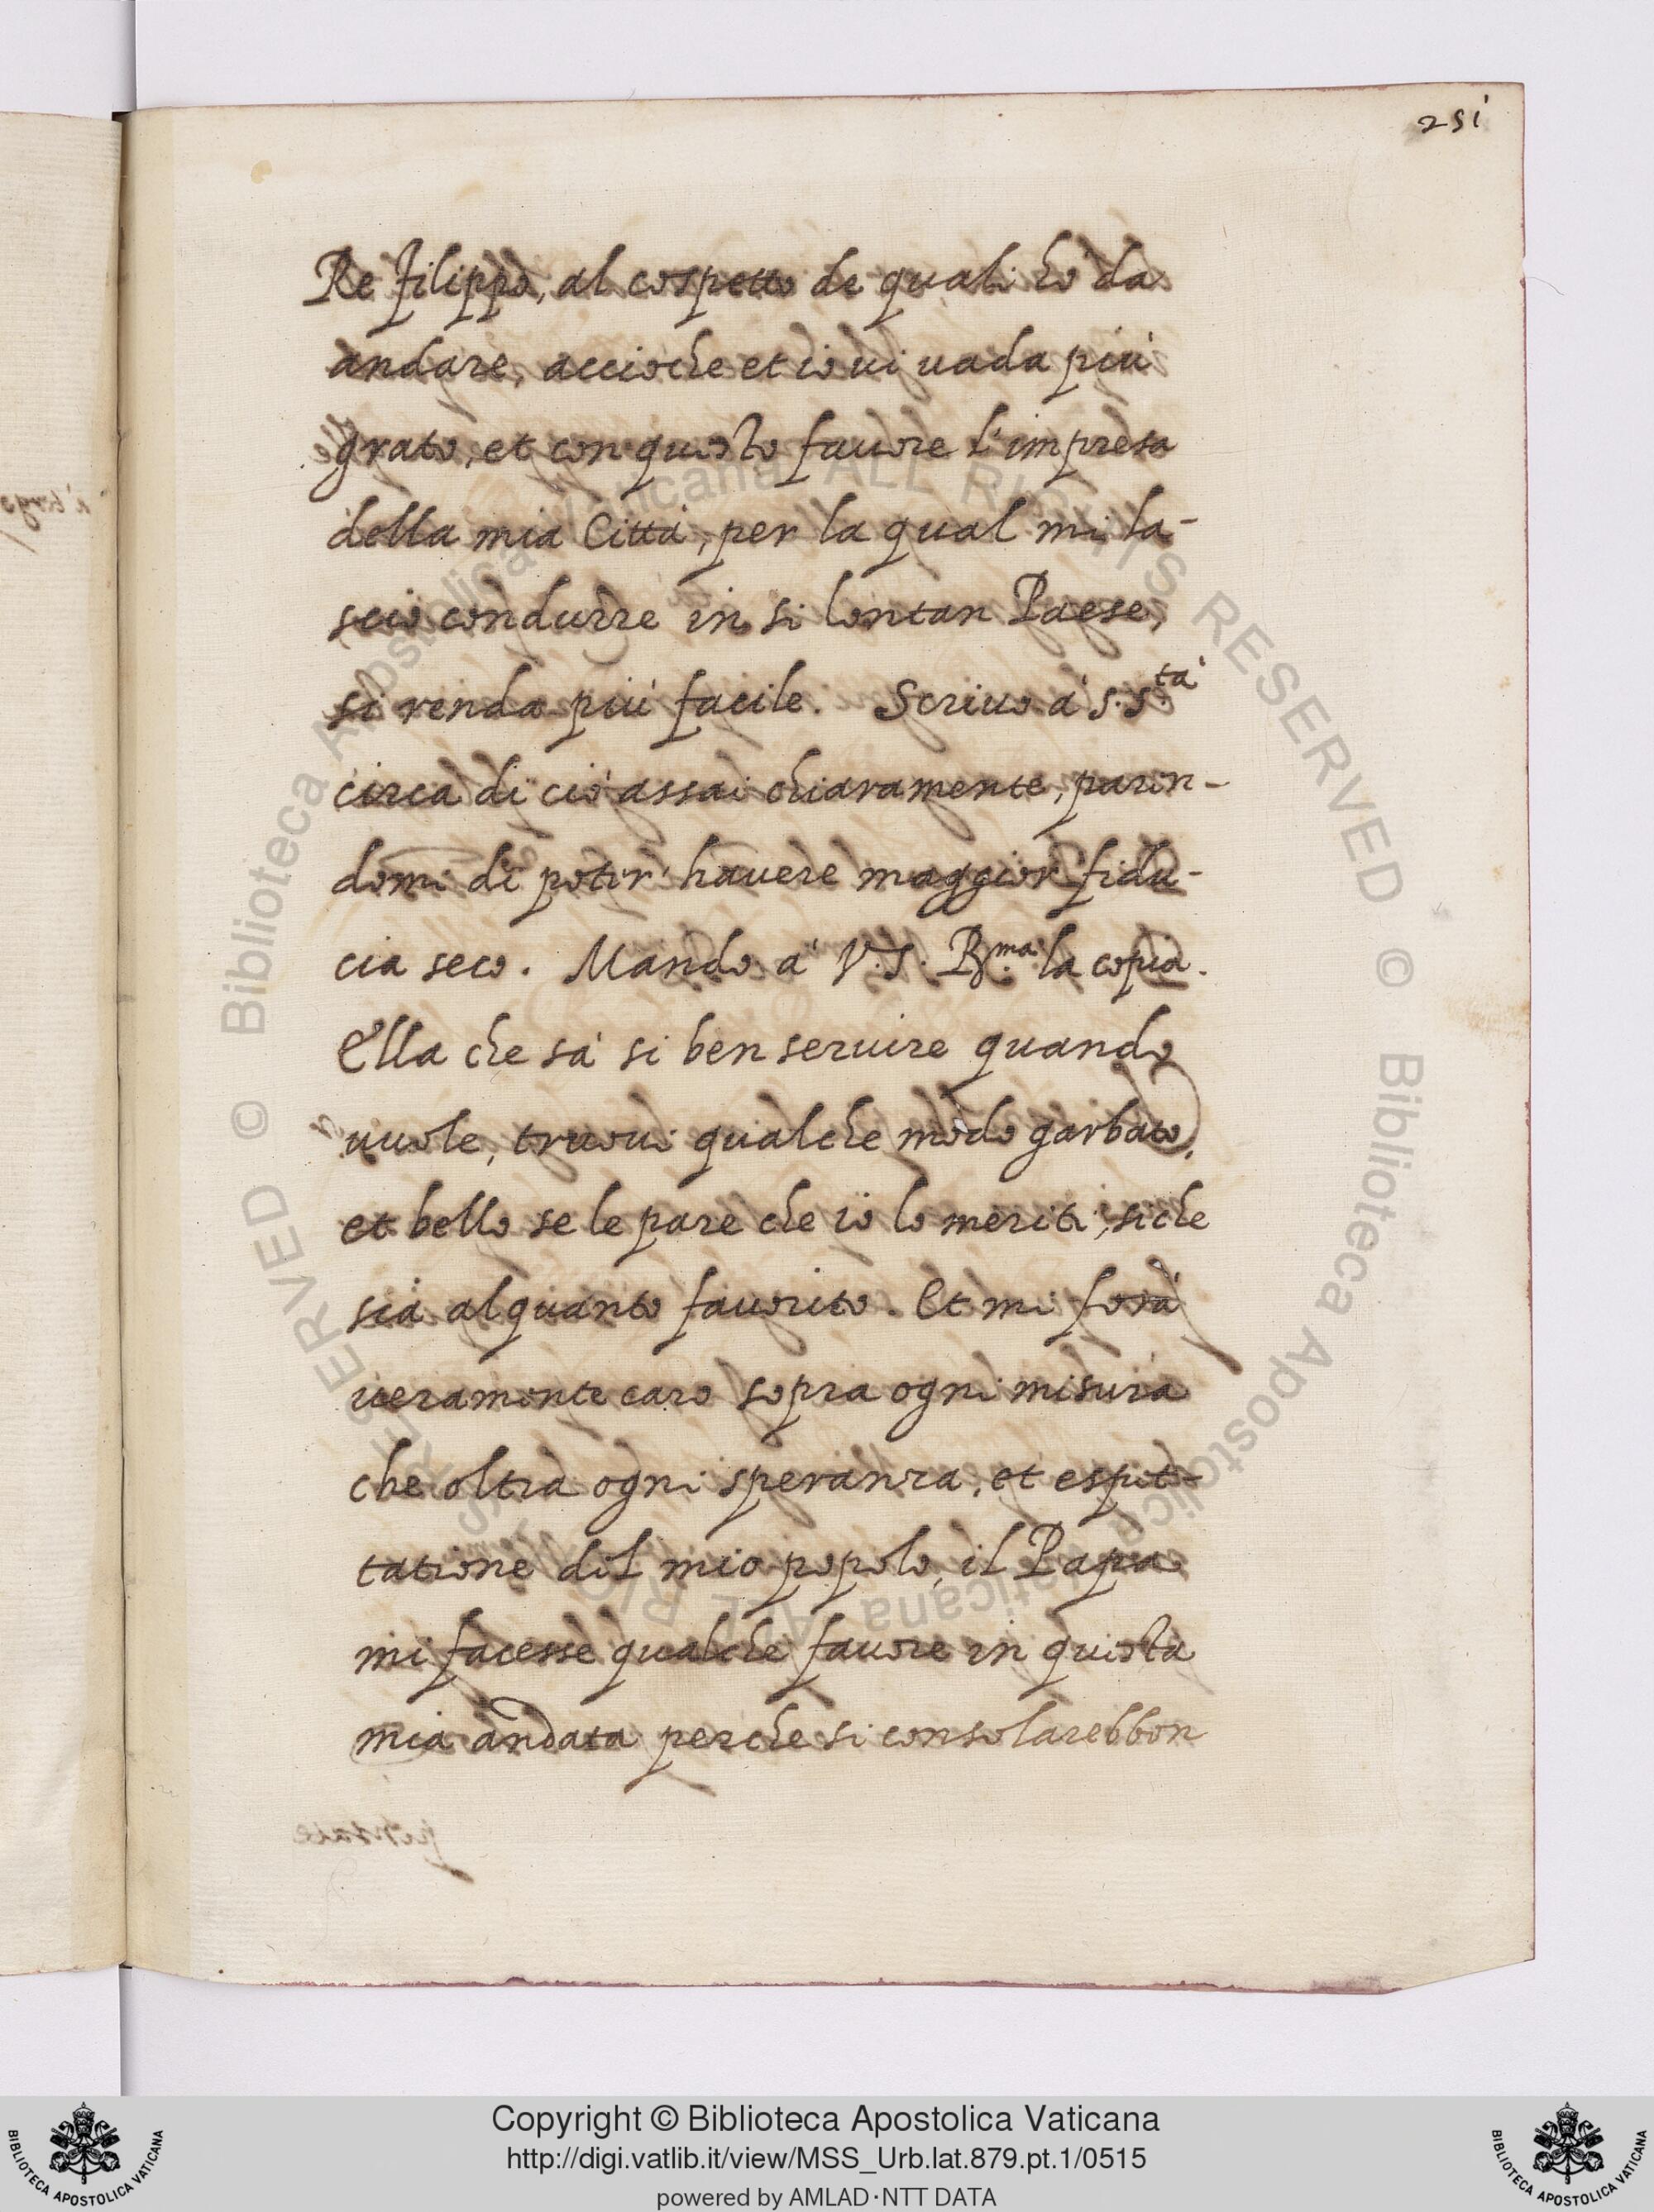 251
Re Filippo, al cospetto de quali hò da
andare, accioche et io ui uada più
grato, et con questo fauore l'impresa
della mia Città, per la qual mi la-
scio condurre in si lontan Paese,
si renda più facile. Scriuo à S. S.tà
circa di ciò assai chiaramente, paren-
domi di poter hauere maggior fidu-
cia seco. Mando à V. S. R.ma la copia.
Ella che sà si ben seruire quando
uuole, truoui qualche modo garbato,
et bello se le pare che io lo meriti, si che
sia alquanto fauorito. Et mi sarà
ueramente caro sopra ogni misura
che oltra ogni speranza, et espet-
tatione del mio popolo, il Papa
mi facesse qualche fauore in questa
mia andata perche si consolarebbon
Copyright © Biblioteca Apostolica Vaticana
http://digi.vatlib.it/view/MSS_Urb.lat.879.pt.1/0515
powered by AMLAD·NTT DATA
BIBLIOTECA APOSTOLICA VATICANA
BIBLIOTECA APOSTOLICA VATICANA
© Biblioteca Apostolica Vaticana ALL RIGHTS RESERVED © Biblioteca Apostolica Vaticana ALL RIGHTS RESERVED